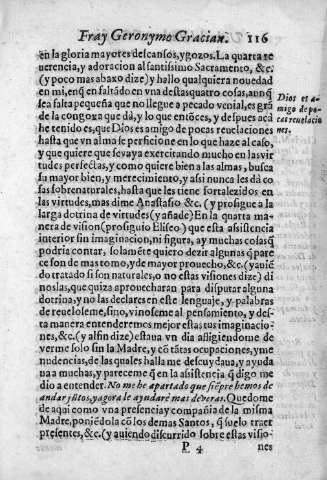 Fray Geronymo Gracian. 116
en la gloria mayores descansos, y gozos. La quarta re
uerencia, y adoracion al santissimo Sacramento, &c.
(y poco mas abaxo dize) y hallo qualquiera nouedad
en mi, enq̃ en faltãdo en vna destas quatro cosas, aunq̃
sea falta pequeña que no llegue a pecado venial, es grã
de la congoxa que dá, y lo que entõces, y despues acà
he tenido es, que Dios es amigo de pocas reuelaciones
hasta que vn alma se perficione en lo que haze al caso,
y que quiere que se vaya exercitando mucho en las vir
tudes perfectas, y como quiere bien a las almas, busca
su mayor bien, y merecimiento, y asi nunca les dá co
sas sobrenaturales, hasta que les tiene fortalezidos en
las virtudes, mas dime Anastasio &c. (y prosigue a la
larga dotrina de virtudes (y añade) En la quarta ma
nera de vision (prosiguio Eliseo) que esta asistencia
interior sin imaginacion, ni figura, ay muchas cosas q̃
podria contar, solamẽte quiero dezir algunas q̃ pare
ce son de mas tomo, y de mayor prouecho, &c. (y auiẽ
do tratado si son naturales, o no estas visiones dize) di
noslas, que quiza aprouecharan para disputar alguna
dotrina, y no las declares en este lenguaje, y palabras
de reueloseme, sino, vinoseme al pensamiento, y des-
ta manera entenderemos mejor estas tus imaginacio-
nes, &c. (y al fin dize) estaua vn dia afligiendome de
verme solo sin la Madre, y cõ tãtas ocupaciones, y me
nudencias, de las quales hallaua me descuydaua, y ayuda
ua a muchas, y pareceme q̃ en la asistencia q̃ digo me
dio a entender. No me he apartado que siẽpre hemos de
andar jũtos, y agora le ayudarè mas deveras. Quedome
de aqui como vna presencia y compañia de la misma
Madre, poniẽdola cõ los demas Santos, q̃ suelo traer
presentes, &c. (y auiendo discurrido sobre estas visio-
P 4 nes
Dios es a-
migo de po-
cas reuelacio
nes.